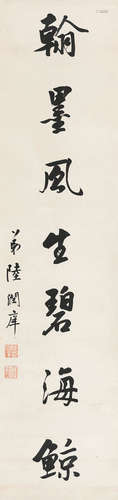 翰墨風生碧海鯨
弟陸潤庠